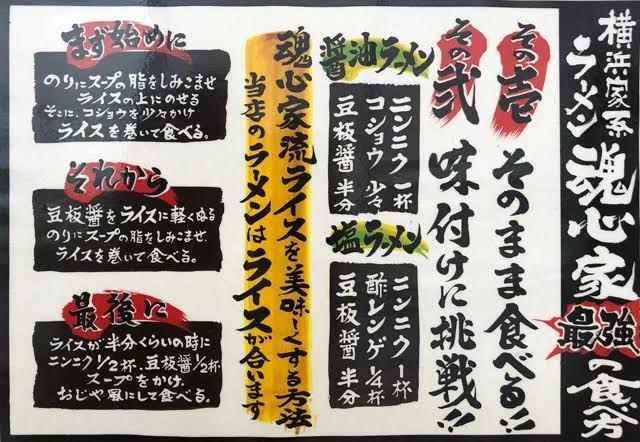 横浜家系
ラーメン魂心家最強の食べ方
その壱 そのまま食べる!!
その弐 味付けに挑戦!!
醤油ラーメン
ニンニク 一杯
コショウ 少々
豆板醤 半分
塩ラーメン
ニンニク 一杯
酢レンゲ 1/4杯
豆板醤 半分
魂心家流ライスを美味しくする方法
当店のラーメンはライスが合います
まず始めに
のりにスープの脂をしみこませ
ライスの上にのせる
そこに、コショウを少々かけ
ライスを巻いて食べる。
それから
豆板醤をライスに軽くぬる
のりにスープの脂をしみこませ、
ライスを巻いて食べる。
最後に
ライスが半分くらいの時に
ニンニク1/2杯、豆板醤1/2杯
スープをかけ、
おじや風にして食べる。